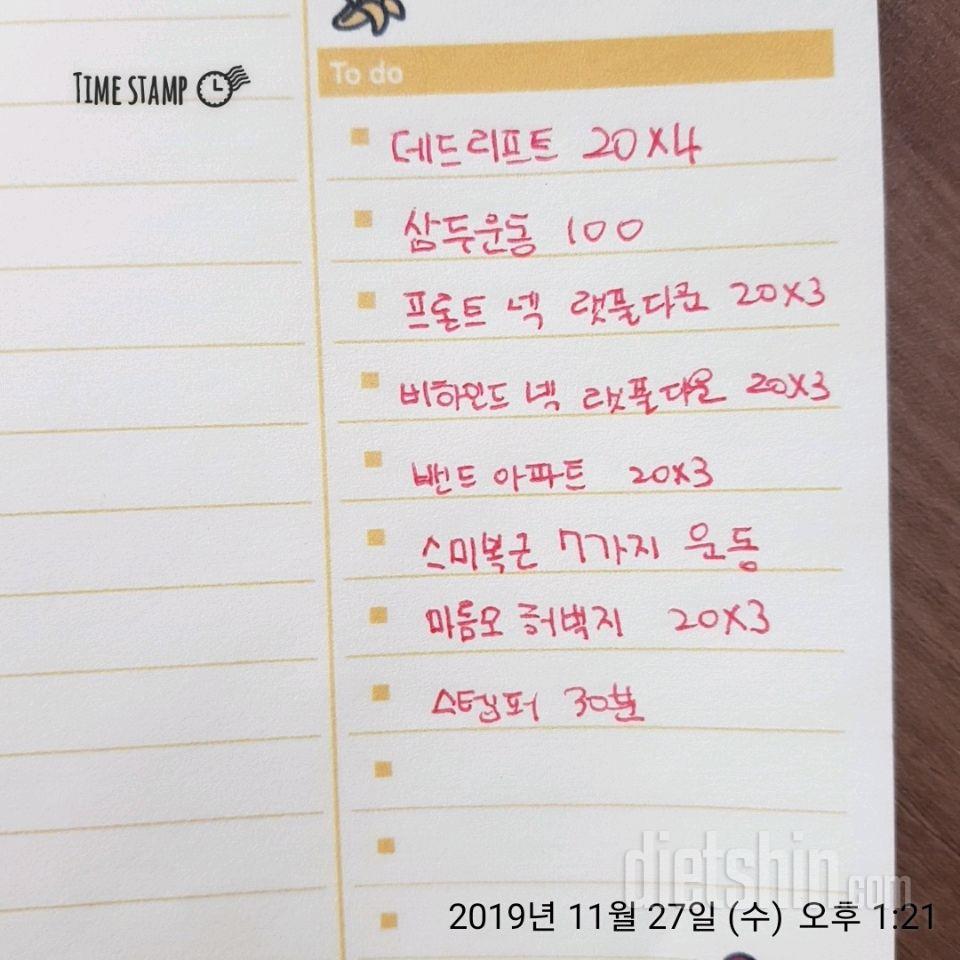 TIME STAMP
To do
데드리프트 20X4
삼두운동 100
프론트 넥 랫풀다운 20X3
비하인드 넥 랫풀다운 20X3
밴드 아파트 20X3
스미복근 7가지 운동
마름모 허벅지 20X3
스텝퍼 30분
dietshin.com
2019년 11월 27일 (수) 오후 1:21